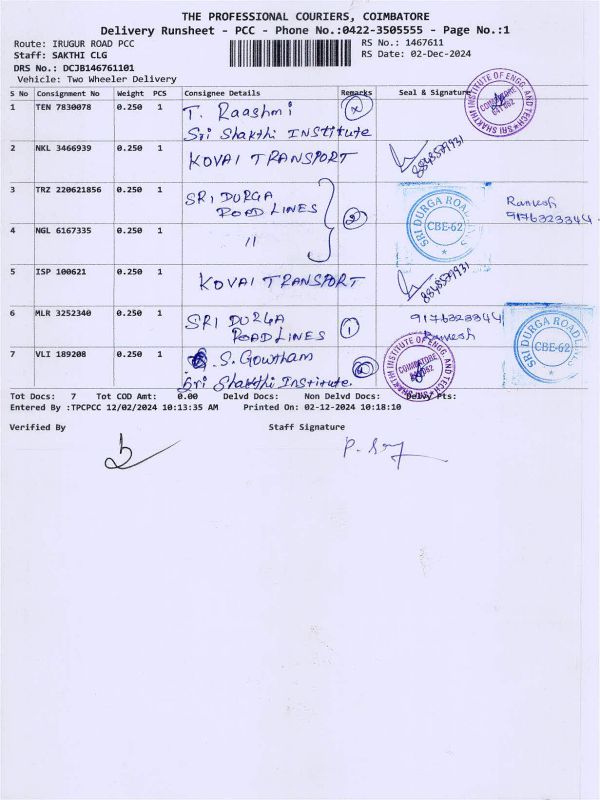 THE PROFESSIONAL COURIERS, COIMBATORE
Delivery Runsheet - PCC - Phone No.:0422-3505555 - Page No.:1
Route: IRUGUR ROAD PCC RS No.: 1467611
Staff: SAKTHI CLG RS Date: 02-Dec-2024
DRS No.: DCJB146761101
Vehicle: Two Wheeler Delivery
S No Consignment No Weight PCS Consignee Details Remarks Seal & Signature
1 TEN 7830078 0.250 1 T. Raashmi
Sri Shakthi INSTitute
SRI SHAKTHI INSTITUTE OF ENGG. AND TECH
COIMBATORE
641 062
2 NKL 3466939 0.250 1 KOVAI TRANSPORT 8848579931
3 TRZ 220621856 0.250 1 SRI DURGA
ROAD LINES 2
SRI DURGA ROADLINES
CBE-62
Ramesh
9176323344
4 NGL 6167335 0.250 1 "
5 ISP 100621 0.250 1 KOVAI TRANSPORT 8848579931
6 MLR 3252340 0.250 1 SRI DURGA
ROAD LINES 1 9176323344
Ramesh
SRI DURGA ROADLINES
CBE-62
7 VLI 189208 0.250 1 S. Gowtham
Sri Shakthi Institute.
SRI SHAKTHI INSTITUTE OF ENGG. AND TECH
COIMBATORE
641 062
Tot Docs: 7 Tot COD Amt: 0.00 Delvd Docs: Non Delvd Docs: Delvy Pts:
Entered By :TPCPCC 12/02/2024 10:13:35 AM Printed On: 02-12-2024 10:18:10
Verified By Staff Signature